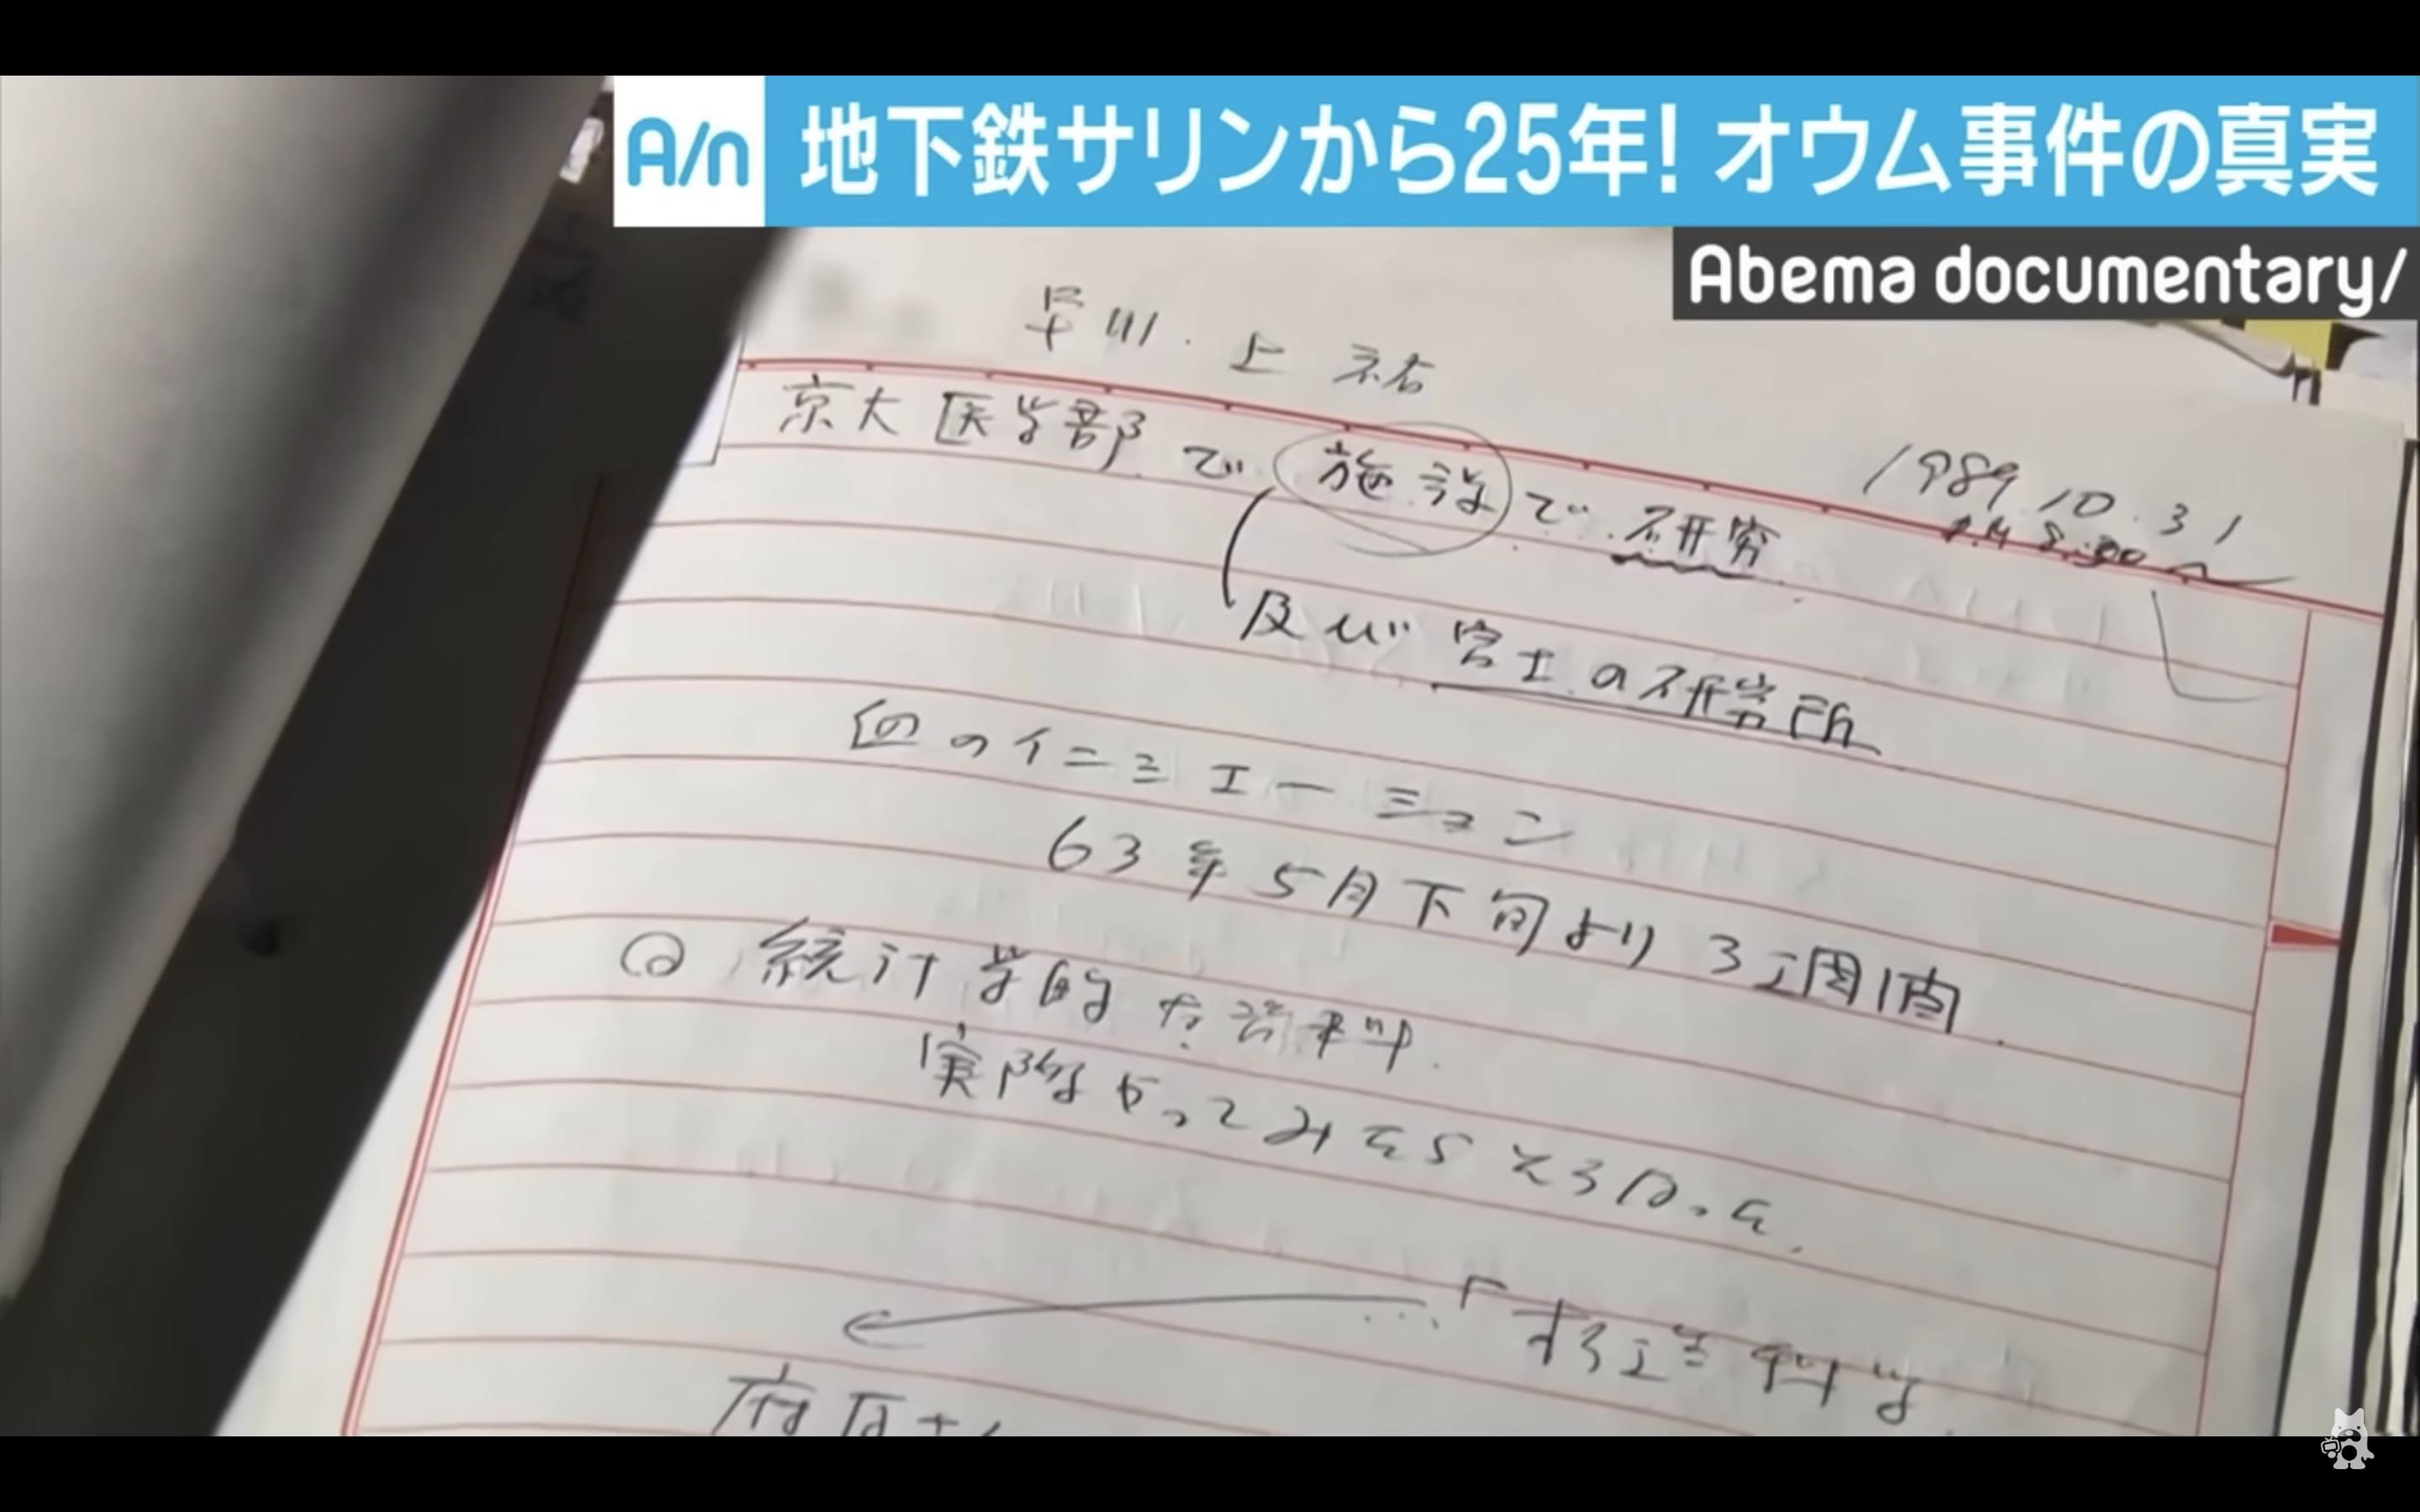 A/n 地下鉄サリンから25年！ オウム事件の真実
Abema documentary/
早川・上祐
1989.10.31
京大医学部で施設で研究
及び富士の研究所
血のイニシエーション
63年5月下旬より3週間
統計学的な資料
実際やってみたらそうだった。